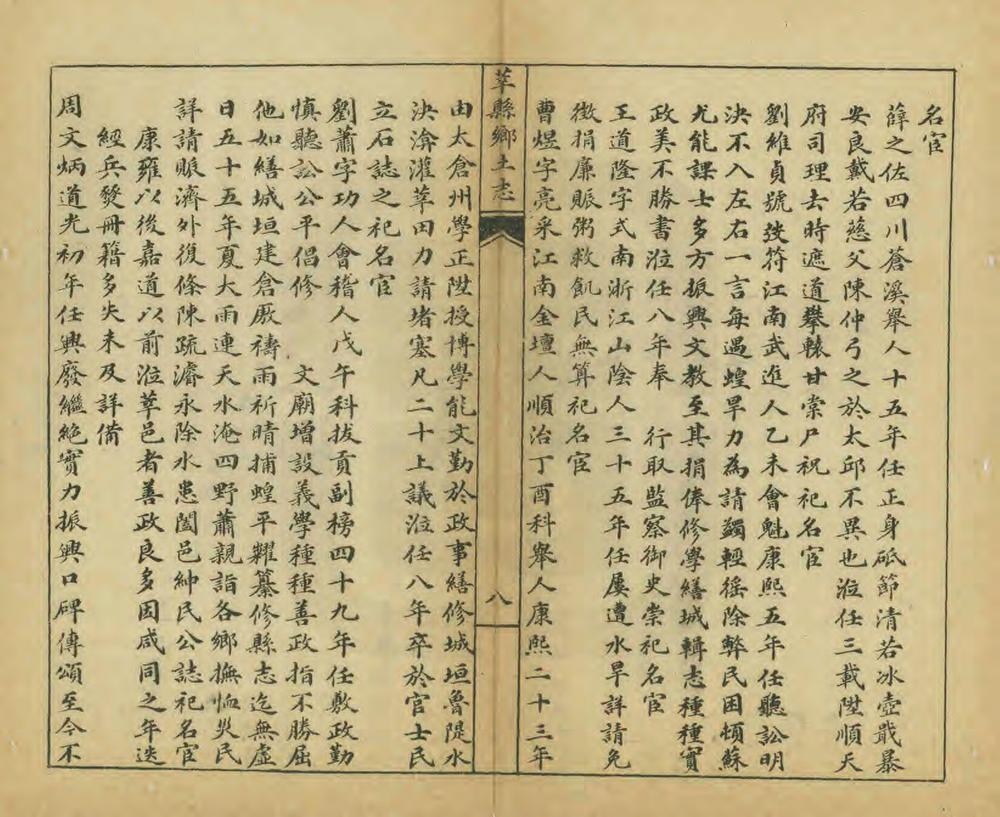 名宦
薛之佐四川蒼溪舉人十五年任正身砥節清若冰壺戢暴
安良戴若慈父陳仲弓之於太邱不異也涖任三載陞順天
府司理去時遮道攀轅甘棠尸祝祀名宦
劉維貞號攱符江南武進人乙未會魁康熙五年任聽訟明
決不入左右一言每遇蝗旱力為請蠲輕徭除弊民困頓蘇
尤能課士多方振興文教至其捐俸修學繕城輯志種種實
政美不勝書涖任八年奉 行取監察御史崇祀名宦
王道隆字式南浙江山陰人三十五年任屢遭水旱詳請免
徵捐廉賑粥救飢民無算祀名宦
曹煜字亮采江南金壇人順治丁酉科舉人康熙二十三年
莘縣鄉土志
八
由太倉州學正陞授博學能文勤於政事繕修城垣魯隄水
決渰灌莘田力請堵塞凡二十上議涖任八年卒於官士民
立石誌之祀名宦
劉蕭字功人會稽人戊午科拔貢副榜四十九年任敷政勤
慎聽訟公平倡修 文廟增設義學種種善政指不勝屈
他如繕城垣建倉廒禱雨祈晴捕蝗平糶纂修縣志迄無虛
日五十五年夏大雨連天水淹四野蕭親詣各鄉撫恤災民
詳請賑濟外復條陳疏濬永除水患闔邑紳民公誌祀名宦
康雍以後嘉道以前涖莘邑者善政良多因咸同之年迭
經兵燹冊籍多失未及詳備
周文炳道光初年任興廢繼絕實力振興口碑傳頌至今不